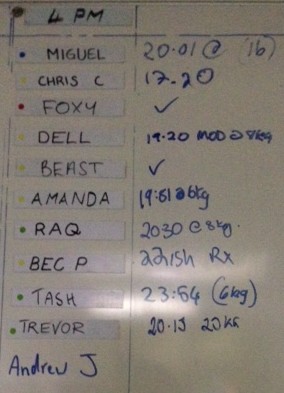 4 PM
MIGUEL 20.01 @ (16)
CHRIS C 17.20
FOXY ✓
DELL 19.20 MOD @ 8kg
BEAST ✓
AMANDA 19:51 @ 6kg
RAQ 2030 @ 8kg.
BEC P 22ish Rx
TASH 23:54 (6kg)
TREVOR 20.15 20KG
Andrew J